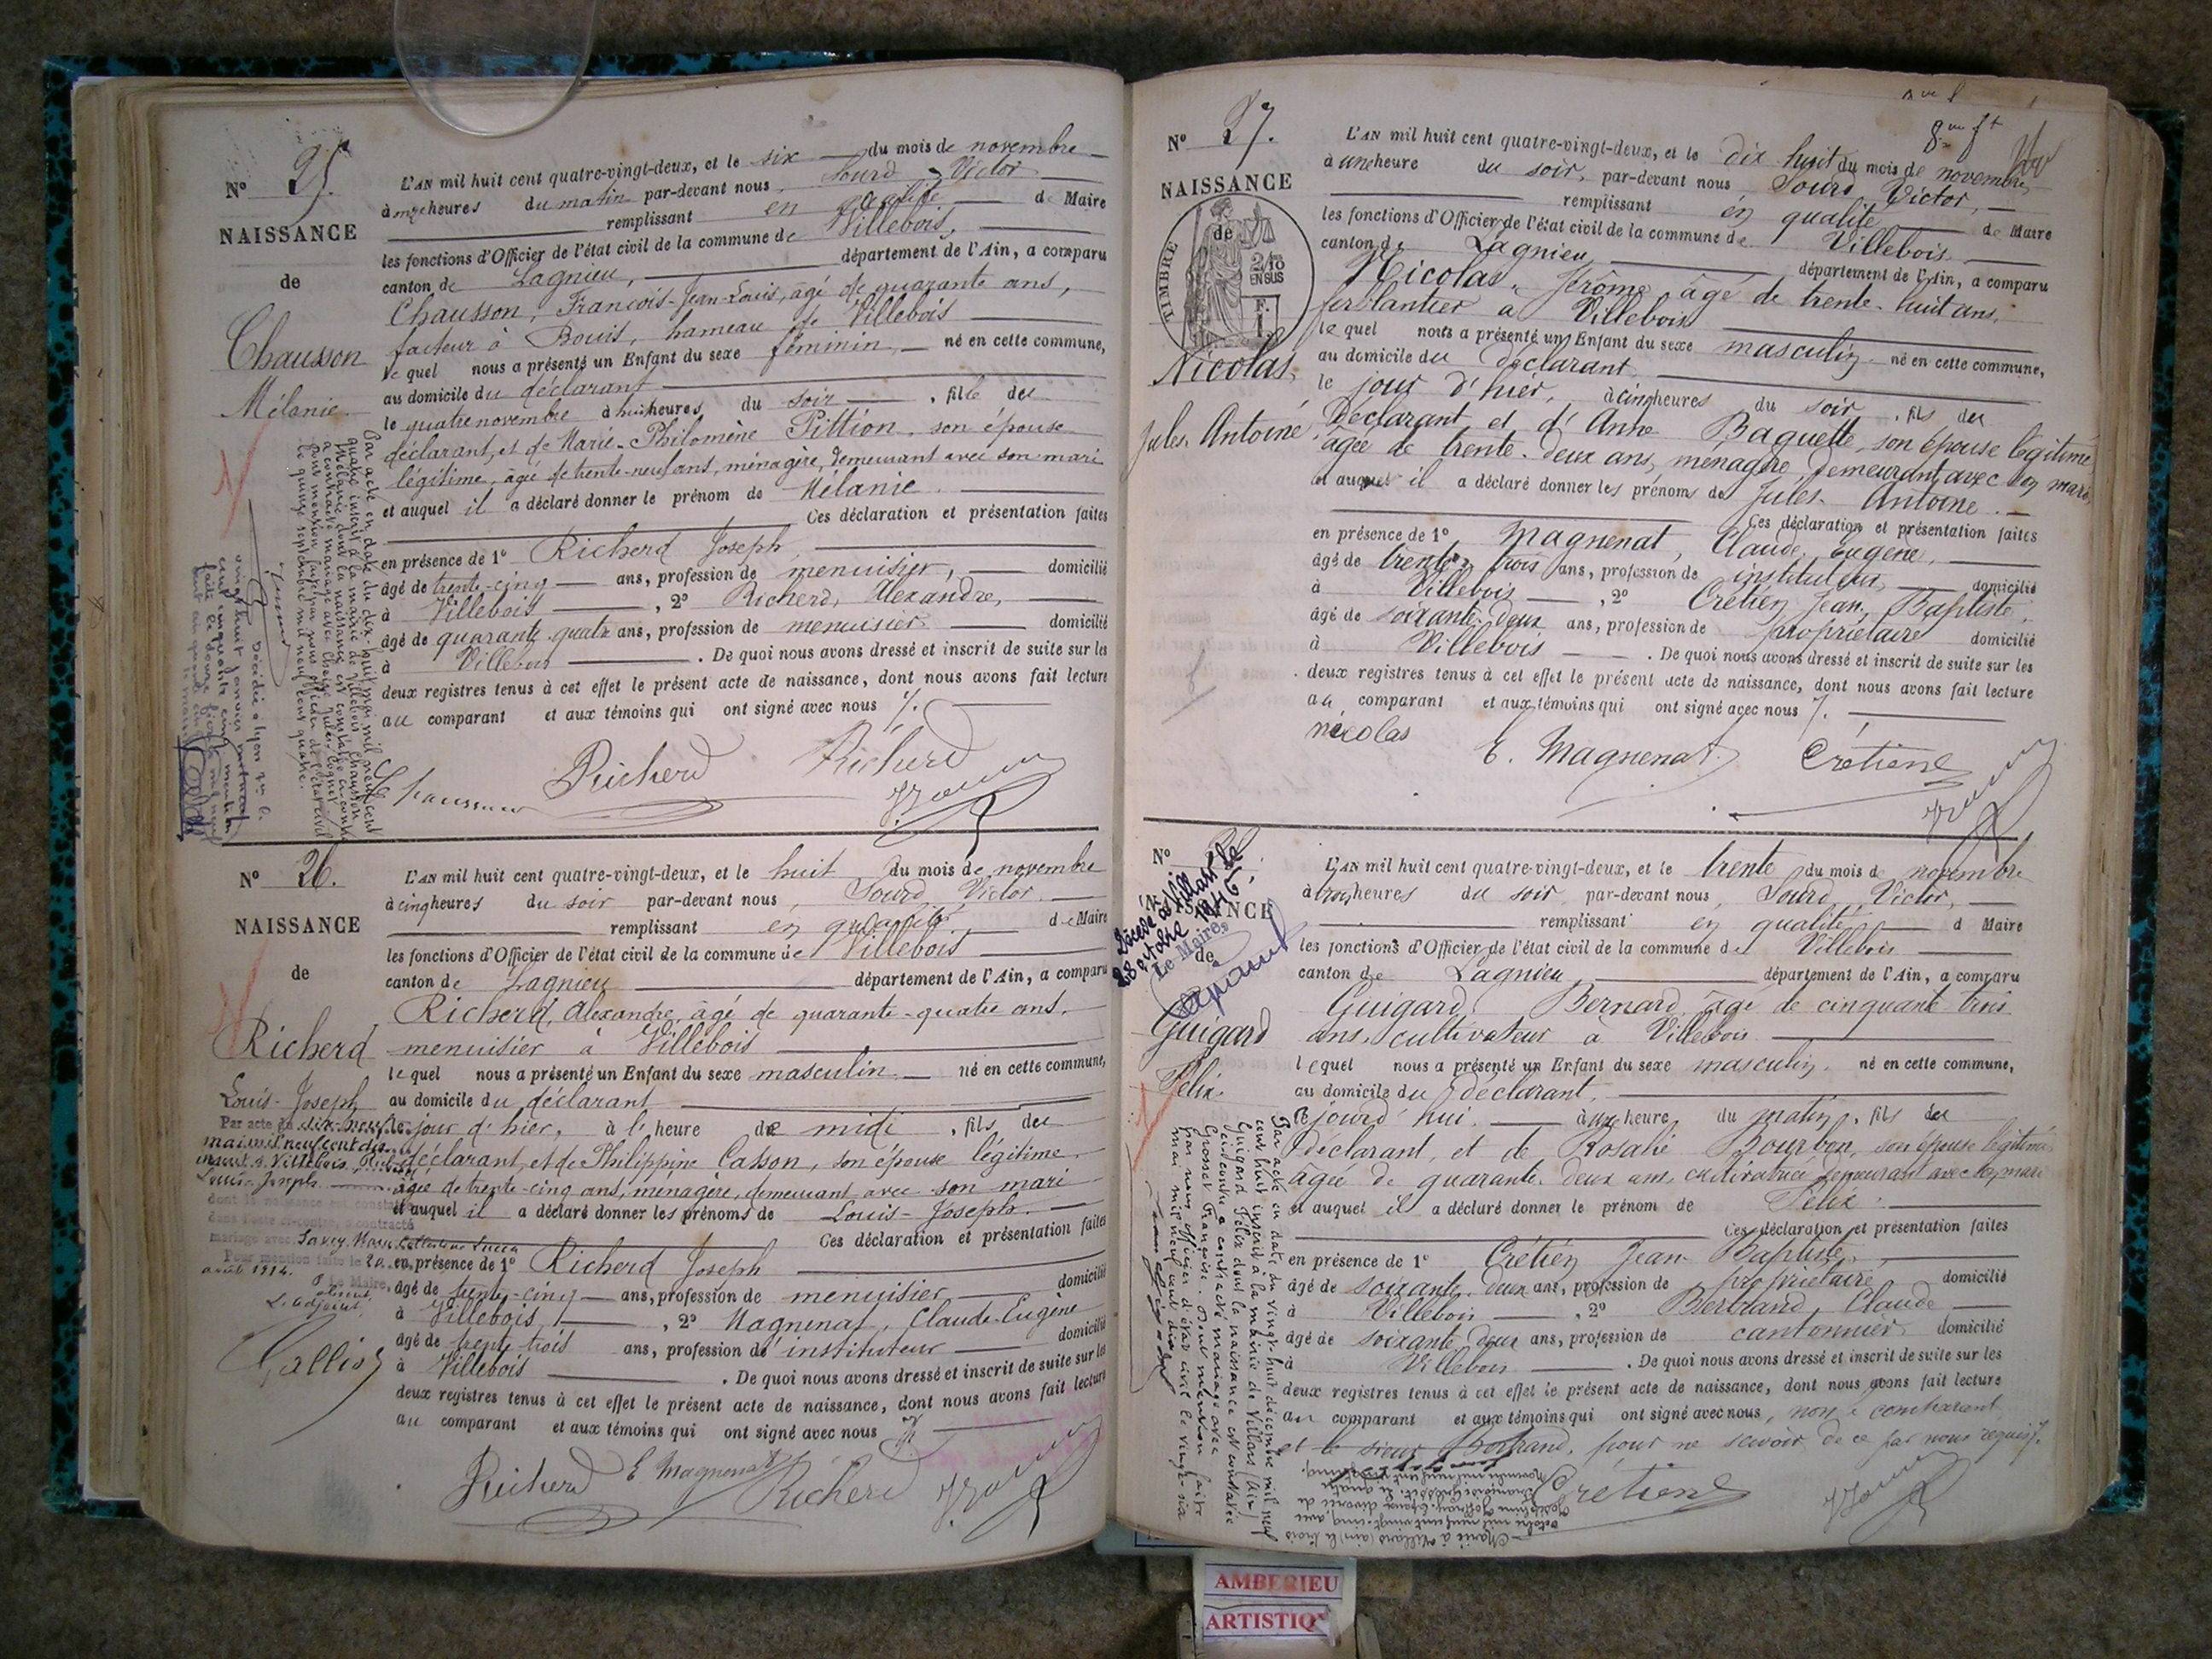 Nº 25.
NAISSANCE
de
Chausson
Mélanie
L'AN mil huit cent quatre-vingt-deux, et le six du mois de novembre
à onze heures du matin par-devant nous, Sourd Victor
remplissant en qualité de Maire
les fonctions d'Officier de l'état civil de la commune de Villebois,
canton de Lagnieu, département de l'Ain, a comparu
Chausson, François-Jean-Louis, âgé de quarante ans,
facteur à Bouis, hameau de Villebois
le quel nous a présenté un Enfant du sexe féminin, né en cette commune,
au domicile du déclarant
le quatre novembre à huit heures du soir, fille du
déclarant, et de Marie-Philomène Pittion, son épouse
légitime, âgé de trente-neuf ans, ménagère, demeurant avec son mari
et auquel il a déclaré donner le prénom de Mélanie.
Ces déclaration et présentation faites
en présence de 1º Richerd Joseph,
âgé de trente-cinq ans, profession de menuisier, domicilié
à Villebois, 2º Richerd, Alexandre,
âgé de quarante-quatre ans, profession de menuisier domicilié
à Villebois. De quoi nous avons dressé et inscrit de suite sur les
deux registres tenus à cet effet le présent acte de naissance, dont nous avons fait lecture
au comparant et aux témoins qui ont signé avec nous /.
Chausson Richerd Richerd
Par acte en date du dix-huit mai mil neuf cent
quatre inscrit à la mairie de Villebois Chausson
Mélanie dont la naissance est constatée ci-contre
a contracté mariage avec Jules Coquet
Pour mention faite par nous officier de l'état civil
le quinze septembre mil neuf cent quatre.
Décédée à Lyon le
vingt huit janvier mil neuf
cent cinquante cinq mention
faite le douze février mil neuf
cent cinquante cinq
Nº 26.
NAISSANCE
de
Richerd
Louis-Joseph
L'AN mil huit cent quatre-vingt-deux, et le huit du mois de novembre
à cinq heures du soir par-devant nous, Sourd, Victor
remplissant en qualité de Maire
les fonctions d'Officier de l'état civil de la commune de Villebois
canton de Lagnieu département de l'Ain, a comparu
Richerd, Alexandre, âgé de quarante-quatre ans,
menuisier à Villebois
le quel nous a présenté un Enfant du sexe masculin né en cette commune,
au domicile du déclarant
le jour d'hier, à l' heure de midi, fils du
déclarant, et de Philippine Casson, son épouse légitime
âgée de trente-cinq ans, ménagère, demeurant avec son mari
et auquel il a déclaré donner les prénoms de Louis-Joseph.
Ces déclaration et présentation faites
en présence de 1º Richerd Joseph
âgé de trente-cinq ans, profession de menuisier domicilié
à Villebois, 2º Magnenat, Claude-Eugène
âgé de trente-trois ans, profession de instituteur domicilié
à Villebois. De quoi nous avons dressé et inscrit de suite sur les
deux registres tenus à cet effet le présent acte de naissance, dont nous avons fait lecture
au comparant et aux témoins qui ont signé avec nous /.
Richerd E Magnenat Richerd
Par acte du dix-neuf
mai mil neuf cent dix
inscrit à Villebois, Richerd
Louis-Joseph
dont la naissance est constatée
dans l'acte ci-contre, a contracté
mariage avec Savey Marie
Pour mention faite le 20
août 1914.
Le Maire,
absent,
L'adjoint,
Gallioz
Nº 27.
NAISSANCE
de
TIMBRE
2/10
EN SUS
F.
1
Nicolas,
Jules Antoine
L'AN mil huit cent quatre-vingt-deux, et le dix huit du mois de novembre
à une heure du soir, par-devant nous Sourd, Victor,
remplissant en qualité de Maire
les fonctions d'Officier de l'état civil de la commune de Villebois
canton de Lagnieu, département de l'Ain, a comparu
Nicolas, Jérôme âgé de trente-huit ans,
ferblantier à Villebois
le quel nous a présenté un Enfant du sexe masculin né en cette commune,
au domicile du déclarant
le jour d'hier, à cinq heures du soir, fils du
Déclarant et d'Anne Baquette, son épouse légitime
âgée de trente-deux ans, ménagère, demeurant avec son mari,
et auquel il a déclaré donner les prénoms de Jules-Antoine.
Ces déclaration et présentation faites
en présence de 1º Magnenat, Claude Eugène,
âgé de trente-trois ans, profession de instituteur, domicilié
à Villebois, 2º Crétien Jean Baptiste,
âgé de soixante-deux ans, profession de propriétaire domicilié
à Villebois. De quoi nous avons dressé et inscrit de suite sur les
deux registres tenus à cet effet le présent acte de naissance, dont nous avons fait lecture
au comparant et aux témoins qui ont signé avec nous /.
nicolas E. Magnenat Crétien
Nº
NAISSANCE
de
Décédé à Villars le
28 octobre 1946.
Le Maire,
Guigard
Félix.
L'AN mil huit cent quatre-vingt-deux, et le trente du mois de novembre
à trois heures du soir par-devant nous, Sourd, Victor,
remplissant en qualité d Maire
les fonctions d'Officier de l'état civil de la commune de Villebois
canton de Lagnieu département de l'Ain, a comparu
Guigard, Bernard âgé de cinquante trois
ans, cultivateur à Villebois
lequel nous a présenté un Enfant du sexe masculin. né en cette commune,
au domicile du déclarant,
le jourd'hui à une heure du matin, fils du
Déclarant, et de Rosalie Bourbon, son épouse légitime
âgée de quarante-deux ans, cultivatrice demeurant avec son mari
et auquel il a déclaré donner le prénom de Félix.
Ces déclaration et présentation faites
en présence de 1º Crétien Jean-Baptiste,
âgé de soixante-deux ans, profession de propriétaire domicilié
à Villebois, 2º Bertrand, Claude
âgé de soixante-deux ans, profession de cantonnier domicilié
à Villebois. De quoi nous avons dressé et inscrit de suite sur les
deux registres tenus à cet effet le présent acte de naissance, dont nous avons fait lecture
au comparant et aux témoins qui ont signé avec nous, non le comparant
et le sieur Bertrand, pour ne savoir de ce par nous requis /.
Crétien
Par acte en date du vingt-huit décembre mil neuf
cent huit inscrit à la mairie de Villars (Ain)
Guigard Félix dont la naissance est constatée
ci-contre a contracté mariage avec
Grosset Françoise. Pour mention faite
par nous officier d'état civil le vingt-six
mai mil neuf cent dix
Marié à Villars (Ain) le trois
octobre mil neuf cent vingt cinq avec
AMBERIEU
ARTISTIQ